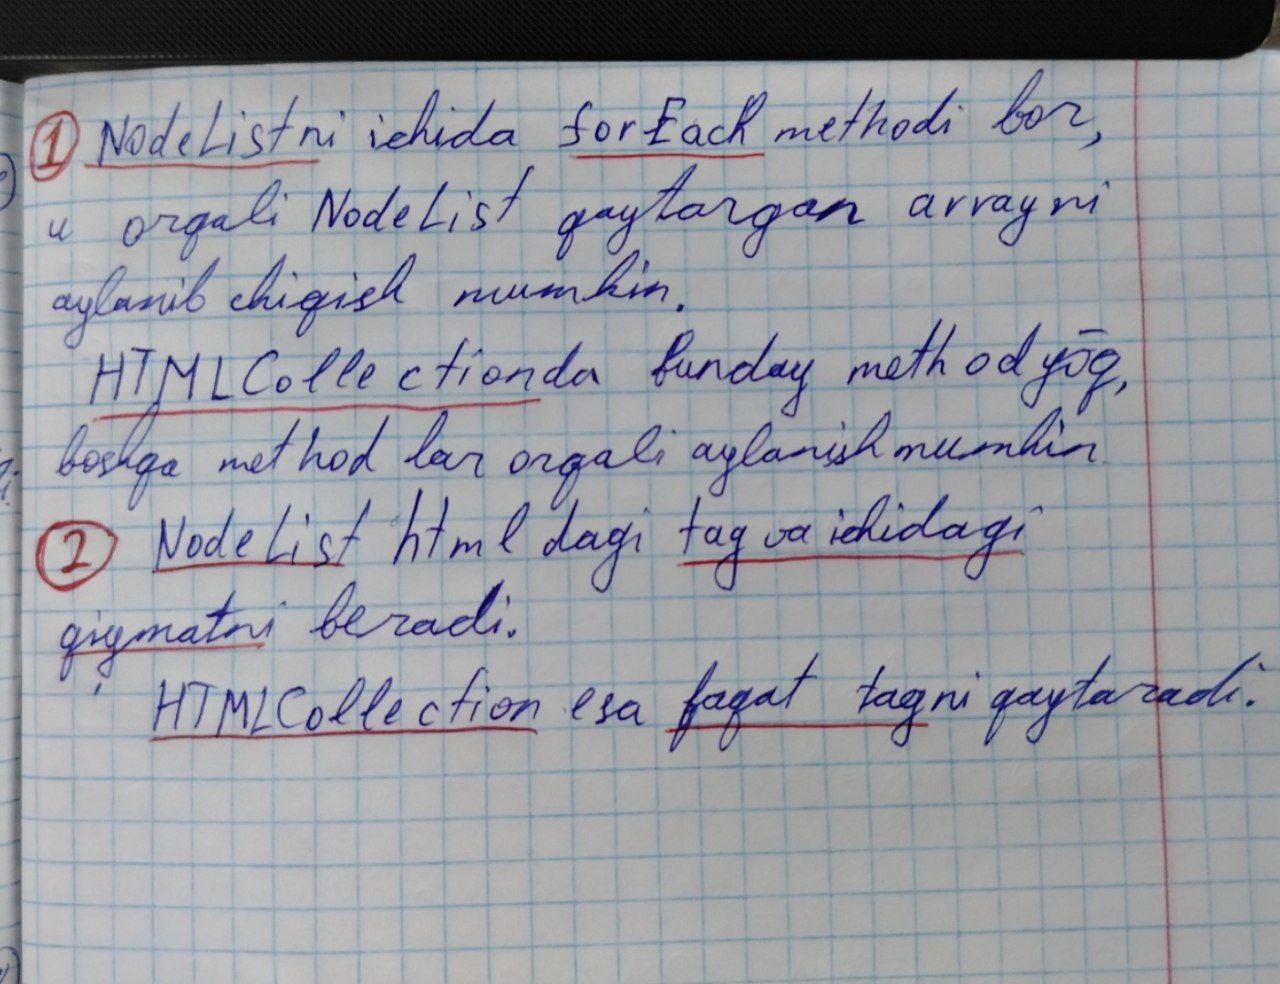 ① NodeListni ichida forEach methodi bor,
u orqali NodeList qaytargan arrayni
aylanib chiqish mumkin.
HTMLCollectionda bunday method yōq,
boshqa methodlar orqali aylanish mumkin
② NodeList html dagi tag va ichidagi
qiymatni beradi.
HTMLCollection esa faqat tagni qaytaradi.